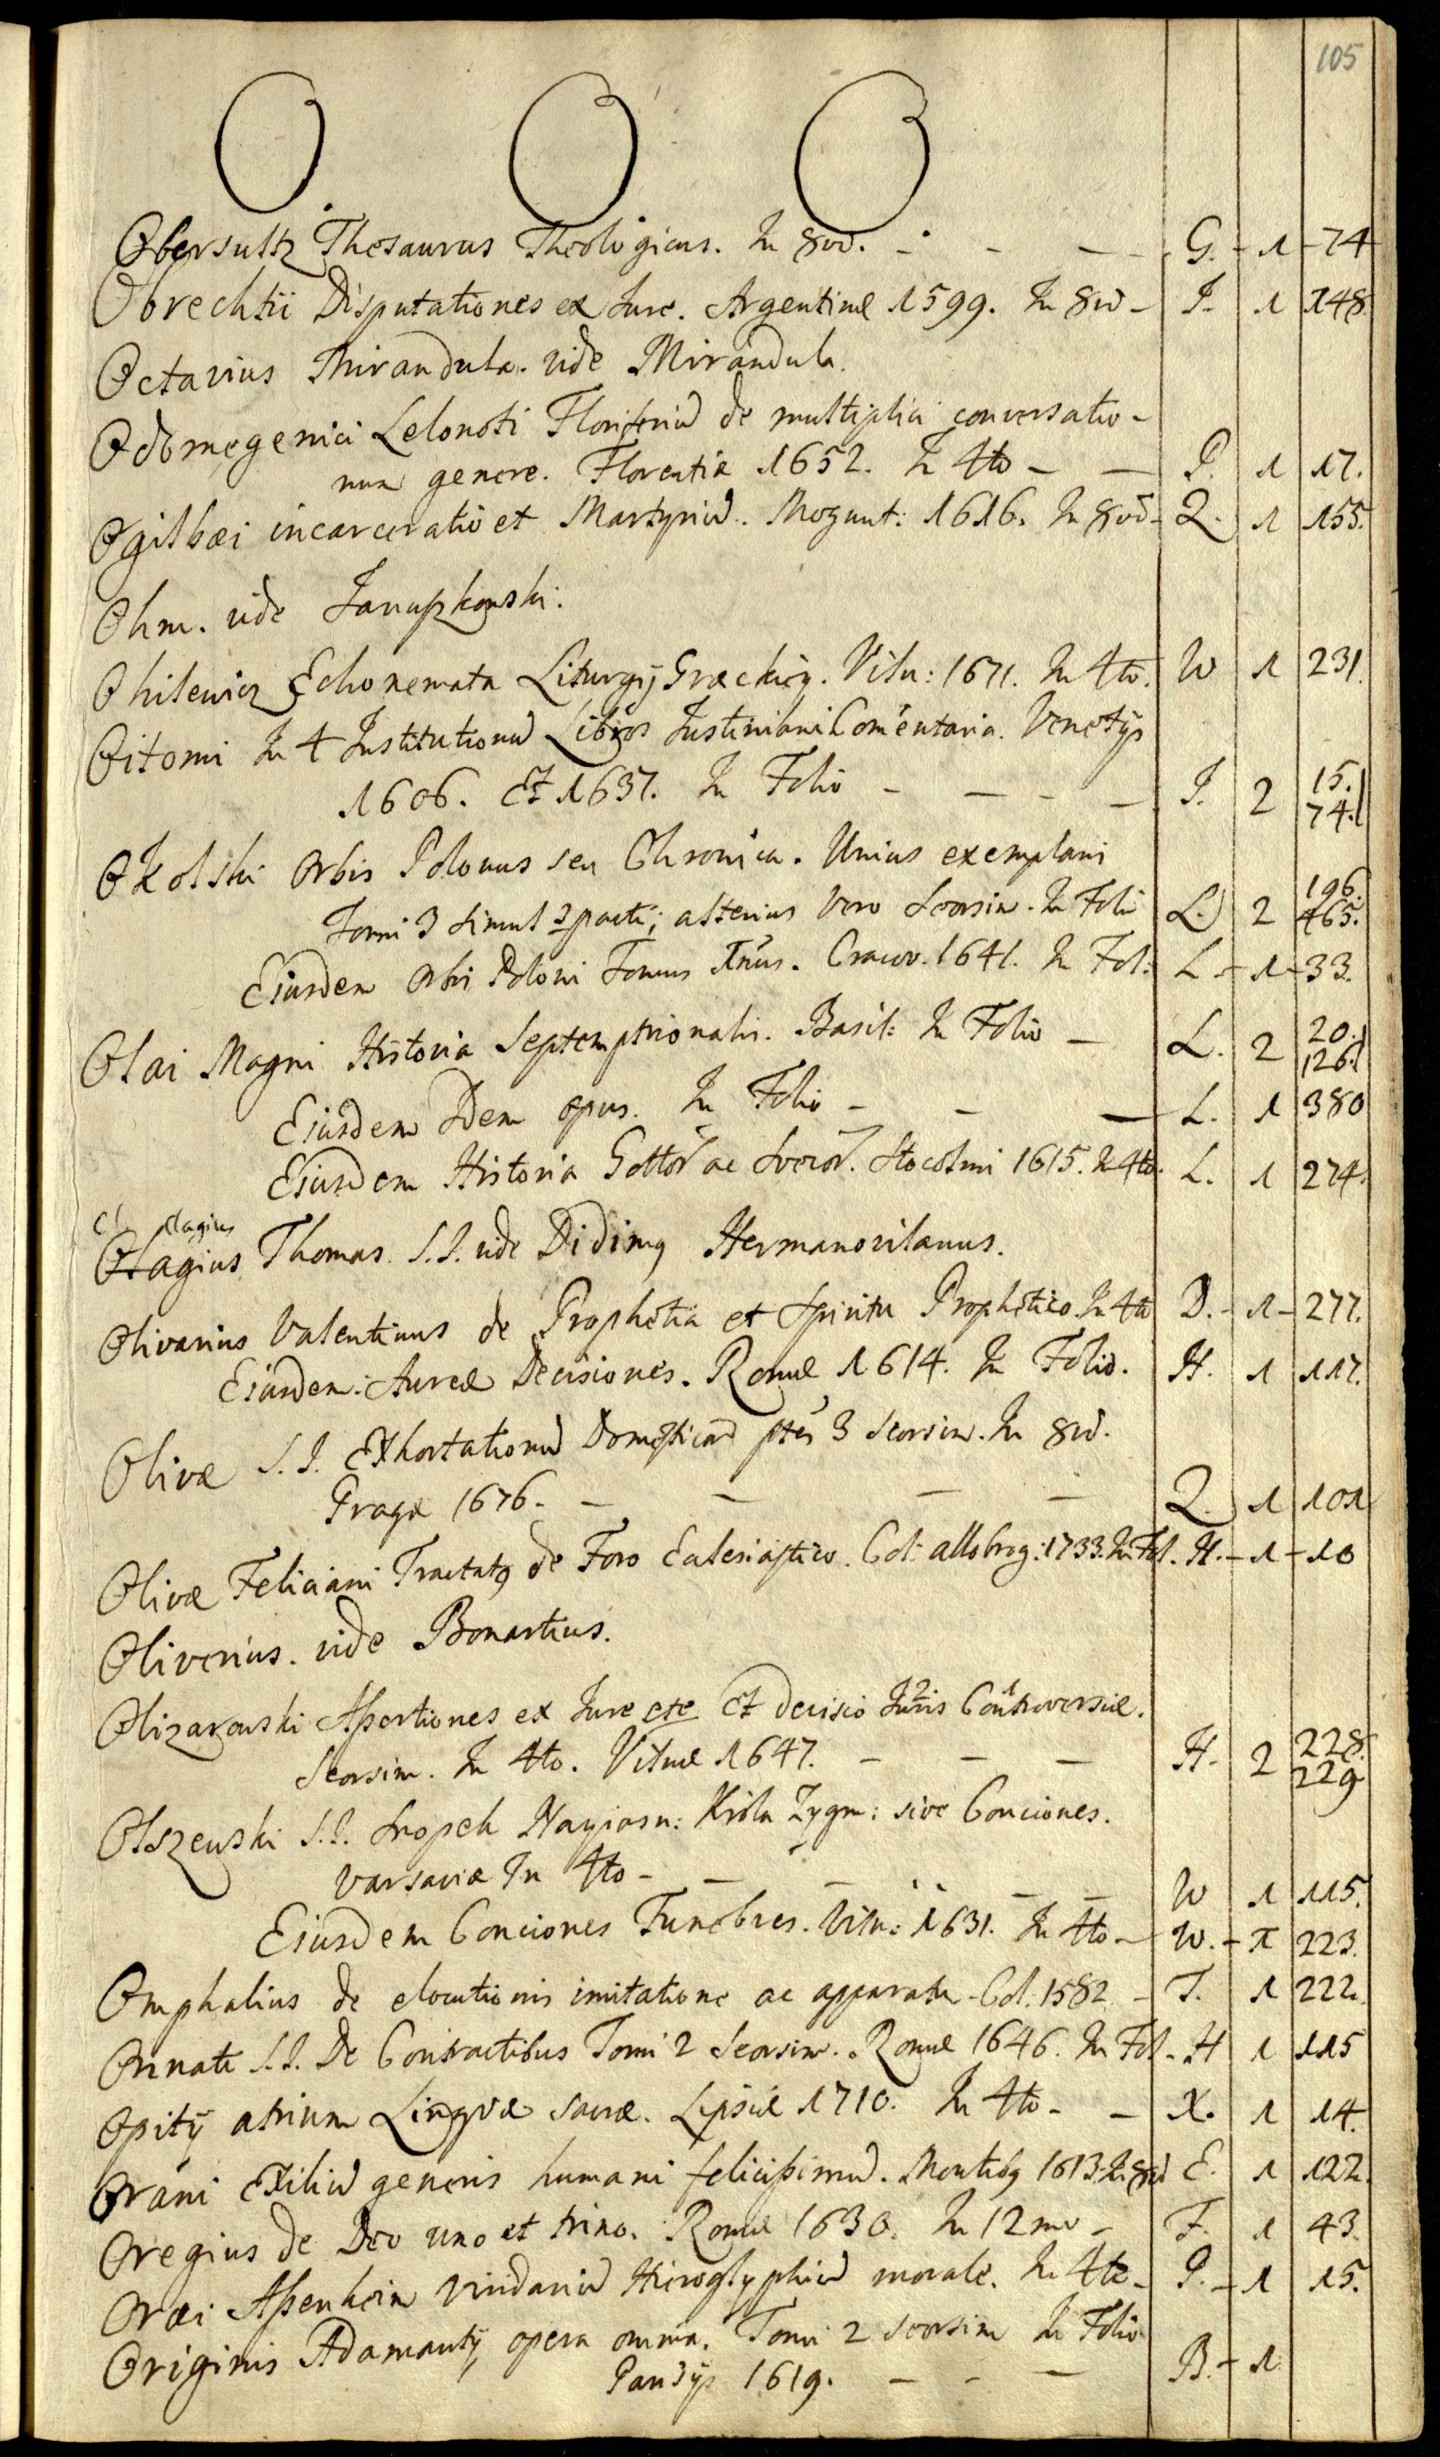 105
O O O
Obersultz Thesaurus Theologicus. In 8vo. - - - G. - 1 - 74
Obrechtii Disputationes ex Jure. Argentinæ 1599. In 8vo - I. 1 148
Octavius Mirandula. vide Mirandula.
Odomegenici Lelonoti Floriferiū de multiplici conversatio-
num genere. Florentiæ 1652. In 4to - - P. 1 17.
Ogilbæi incarceratio et Martyriū. Mogunt: 1616. In 8vo - Q. 1 155.
Ohm. vide Januszkowski.
Ohilewicz Echonemata Liturgij Græckiey. Viln: 1671. In 4to. W 1 231.
Oitomi In 4 Institutionū Libros Justiniani Com̃entaria. Venetijs
1606. Et 1637. In Folio - - - - I. 2 15. 74.
Okolski Orbis Polonus seu Chronica. Unius exemplaris
Tomi 3 simul compacti; alterius vero seorsim. In Folio L. 2 196. 465.
Eiusdem Orbis Poloni Tomus Imus. Cracov. 1641. In Fol: L - 1 - 33.
Olai Magni Historia Septemptrionalis. Basil: In Folio - L. 2 20. 126.
Eiusdem Idem opus. In Folio - - - L. 1 380
Eiusdem Historia Gottoƶ ac Svecoƶ. Stocolmi 1615. In 4to. L. 1 274.
El elagius
Olagius Thomas. S.J. vide Didimq Hermanovilanus.
Olivarius Valentinus de Prophetia et Spiritu Prophetico. In 4to D. - 1 - 277.
Eiusdem: Aureæ Decisiones. Romæ 1614. In Folio. H. 1 117.
Olivæ S.J. Exhortationū Domesticaƶ ptes 3 seorsim. In 8vo.
Pragæ 1676. - - - - Q. 1 101
Olivæ Feliciani Tractatq de Foro Eclesiastico. Col: allobrog: 1733. In Fol. H. - 1 - 10
Oliverius. vide Bonartius.
Olizarowski Assertiones ex Jure etc Et decisio Juris Controversiæ.
Seorsim. In 4to. Vilnæ 1647. - - - H. 2 228. 229
Olszewski S.J. Snopek Nayiasn: Króla Zygm: sive Conciones.
Varsaviæ In 4to - - - - - W 1 115.
Eiusdem Conciones Funebres. Viln: 1631. In 4to - W. - 1 223.
Omphalius de elocutionis imitatione ac apparatu. Col: 1582 - T. 1 222.
Onnate S.J. De Contractibus Tomi 2 Seorsim. Romæ 1646. In Fol. H 1 115
Opitij atrium Lingvæ sacræ. Lipsiæ 1710. In 4to - - X. 1 14.
Orani Exiliū generis humani felicissimū. Montibq 1613. In 8vo E. 1 122.
Oregius de Deo uno et trino. Romæ 1630. In 12mo - F. 1 43.
Oræi Assenheim Viridariū Hieroglyphicū morale. In 4to - P. - 1 15.
Originis Adamantij opera omnia. Tomi 2 seorsim In Folio
Parisijs 1619. - - - B. - 1